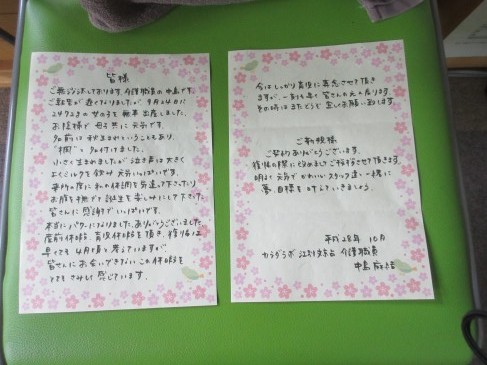 皆様
ご無沙汰しております。介護職員の中島です。
ご報告が遅くなりましたが、9月24日に
2472gの女の子を無事出産しました。
お陰様で母子共に元気です。
名前は秋生まれということもあり、
と名付けました。
小さく生まれましたが泣き声は大きく
よくミルクを飲み元気いっぱいです。
妊娠の度に私の体調を気遣って下さったり
お腹を撫でて誕生を楽しみにして下さり
皆さんに感謝でいっぱいです。
本当にパワーになりました。ありがとうございました。
産前休暇、育児休暇を頂き、復帰は
早くても4月頃と考えていますが、
皆さんにお会いできないこの休暇を
とてもさみしく感じています。
今はしっかり育児に専念させて頂き
ますが、一刻も早く皆さんの元へ戻ります。
その時はまたどうぞ宜しくお願い致します。
ご新規様
ご契約ありがとうございます。
復帰の際に改めましてご挨拶させて頂きます。
明るく元気でかわいいスタッフ達と一緒に
夢、目標を叶えていきましょう。
平成28年 10月
カラダラボ 介護職員
中島